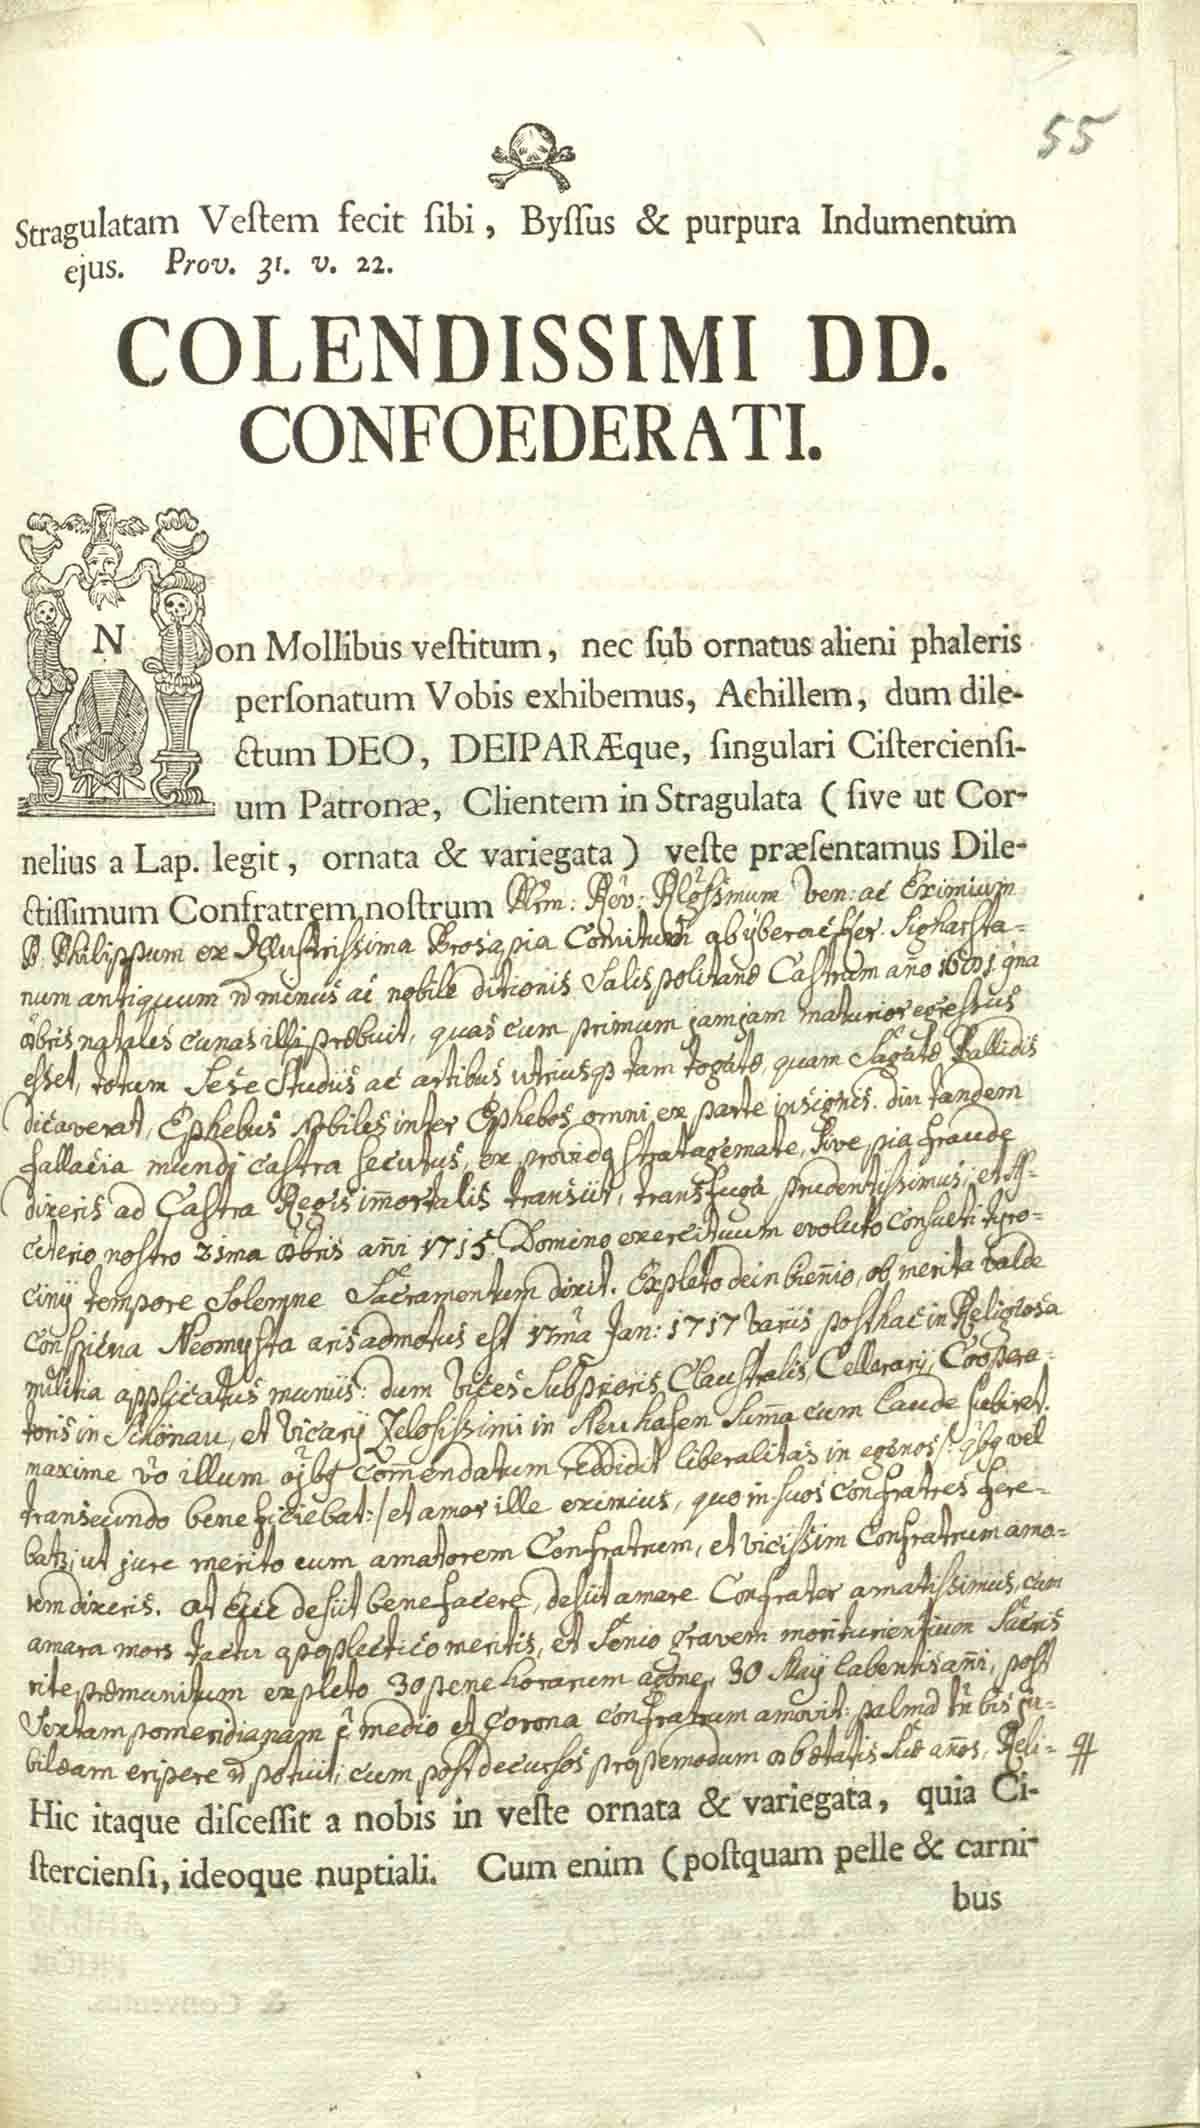 55
Stragulatam Veſtem fecit ſibi, Byſſus & purpura Indumentum
ejus. Prov. 31. v. 22.
COLENDISSIMI DD.
CONFOEDERATI.
Non Mollibus veſtitum, nec ſub ornatus alieni phaleris
perſonatum Vobis exhibemus, Achillem, dum dile-
ctum DEO, DEIPARÆque, ſingulari Ciſtercienſi-
um Patronæ, Clientem in Stragulata (ſive ut Cor-
nelius a Lap. legit, ornata & variegata) veſte præſentamus Dile-
ctiſſimum Confratrem noſtrum Ven: ac Eximium
P. Philippum ex Illustrissima Prosapia Comitum ab
num antiquum minus ac nobile ditionis Salispolitanæ Castrum año
natales cunas illi præbuit, quas cum primum jamjam maturior egressus
esset, totum Sese Studiis ac artibus utriusq tam togatæ, quam Sagatæ Palladis
dicaverat, Ephebus Nobiles inter Ephebos omni ex parte insignis. diu tandem
fallacia mundi castra secutus, ex provido stratagemate, sive pia fraude
dixeris ad Castra Regis im̄ortalis transiit, transfuga prudentissimus, et
citerio nostro 21ma 8bris añi 1715 Domino exercituum evoluto consueti tyro-
cinij tempore Solemne Sacramentum dixit. Expleto dein bien̄io, ob merita valde
conspicua Neomysta aris admotus est 17ma Jan: 1717 variis posthac in Religiosa
militia applicatus muniis: dum vices Subprioris Claustralis, Cellerarij, Coopera-
toris in Schönau, et Vicarij Zelosissimi in Neuhasen sum̄a cum laude subiret.
maxime illum com̄endatum reddidit liberalitas in egenos
transeundo beneficiebat:/ et amor ille eximius, quo in suos confratres fere-
bat; ut jure merito eum amatorem Confratrum, et vicissim Confratrum amo-
rem dixeris. At desiit benefacere, desiit amare Confrater amatissimus, cum
amara mors tactu apoplectico meritis, et Senio gravem moriturientium Sacris
rite præmunitum expleto 30 pene horarum agone, 30 Maij labentis añi, post
Sextam pomeridianam è medio et Corona confratrum amovit: palmã
bilæam eripere potuit, cum post decursos propemodum ætatis suæ añnos, Reli- #
Hic itaque diſceſſit a nobis in veſte ornata & variegata, quia Ci-
ſtercienſi, ideoque nuptiali. Cum enim (poſtquam pelle & carni-
bus